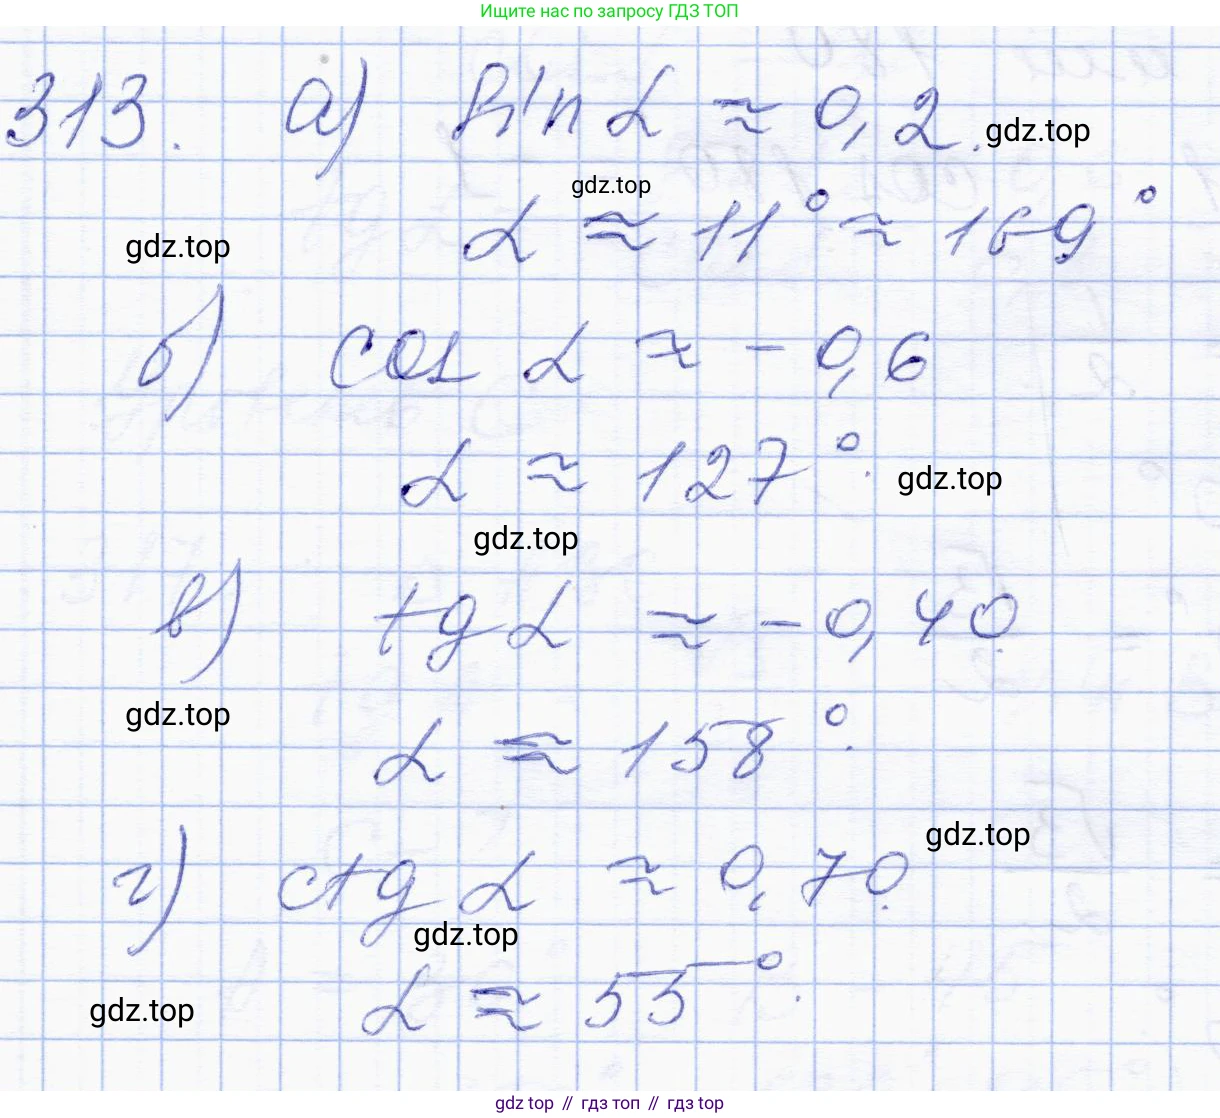 Ищите нас по запросу ГДЗ ТОП
313. а) sin α ≈ 0,2.
gdz.top
gdz.top
α ≈ 11° ≈ 169°
gdz.top
б) cos α ≈ - 0,6
α ≈ 127°.
gdz.top
gdz.top
в) tg α ≈ - 0,40.
gdz.top
α ≈ 158°.
gdz.top
г) ctg α ≈ 0,70.
gdz.top
α ≈ 55°.
gdz.top
gdz top // гдз топ // гдз top